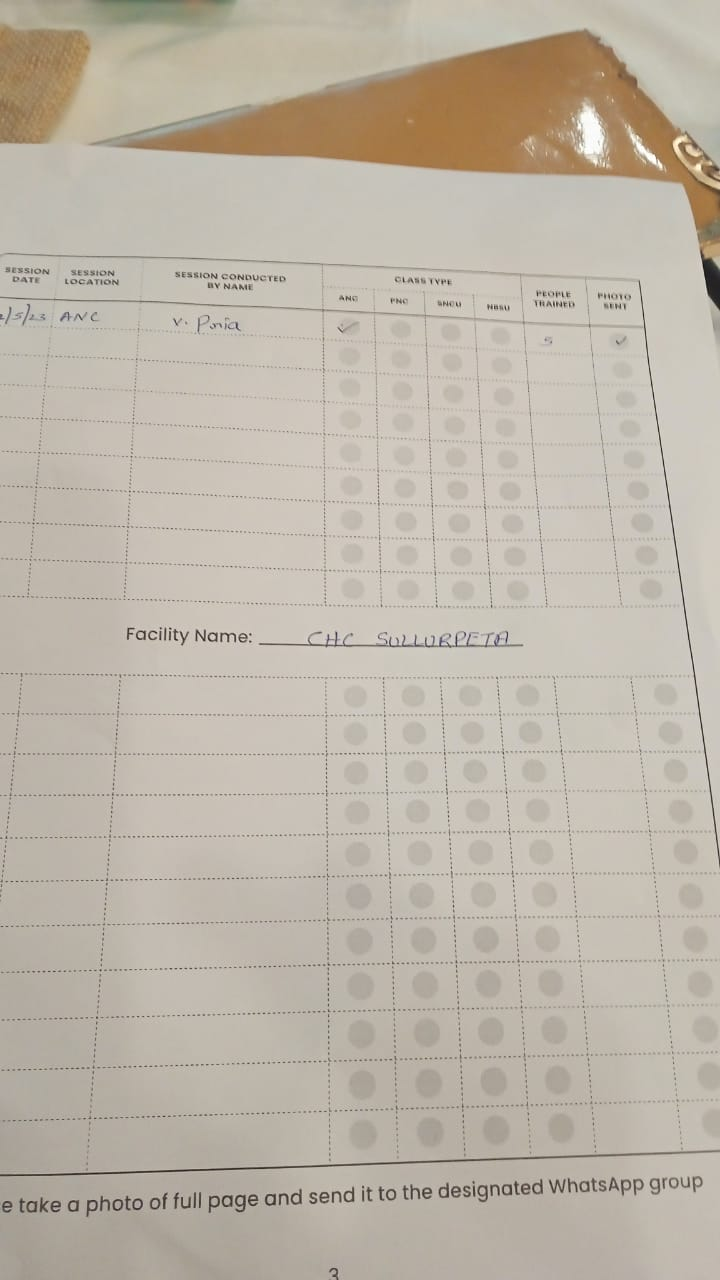 SESSION DATE SESSION LOCATION SESSION CONDUCTED BY NAME CLASS TYPE PEOPLE TRAINED PHOTO SENT
ANC PNC SNCU NBSU
/5/23 ANC V. 5
Facility Name: CHC SULLURPETA
e take a photo of full page and send it to the designated WhatsApp group
3